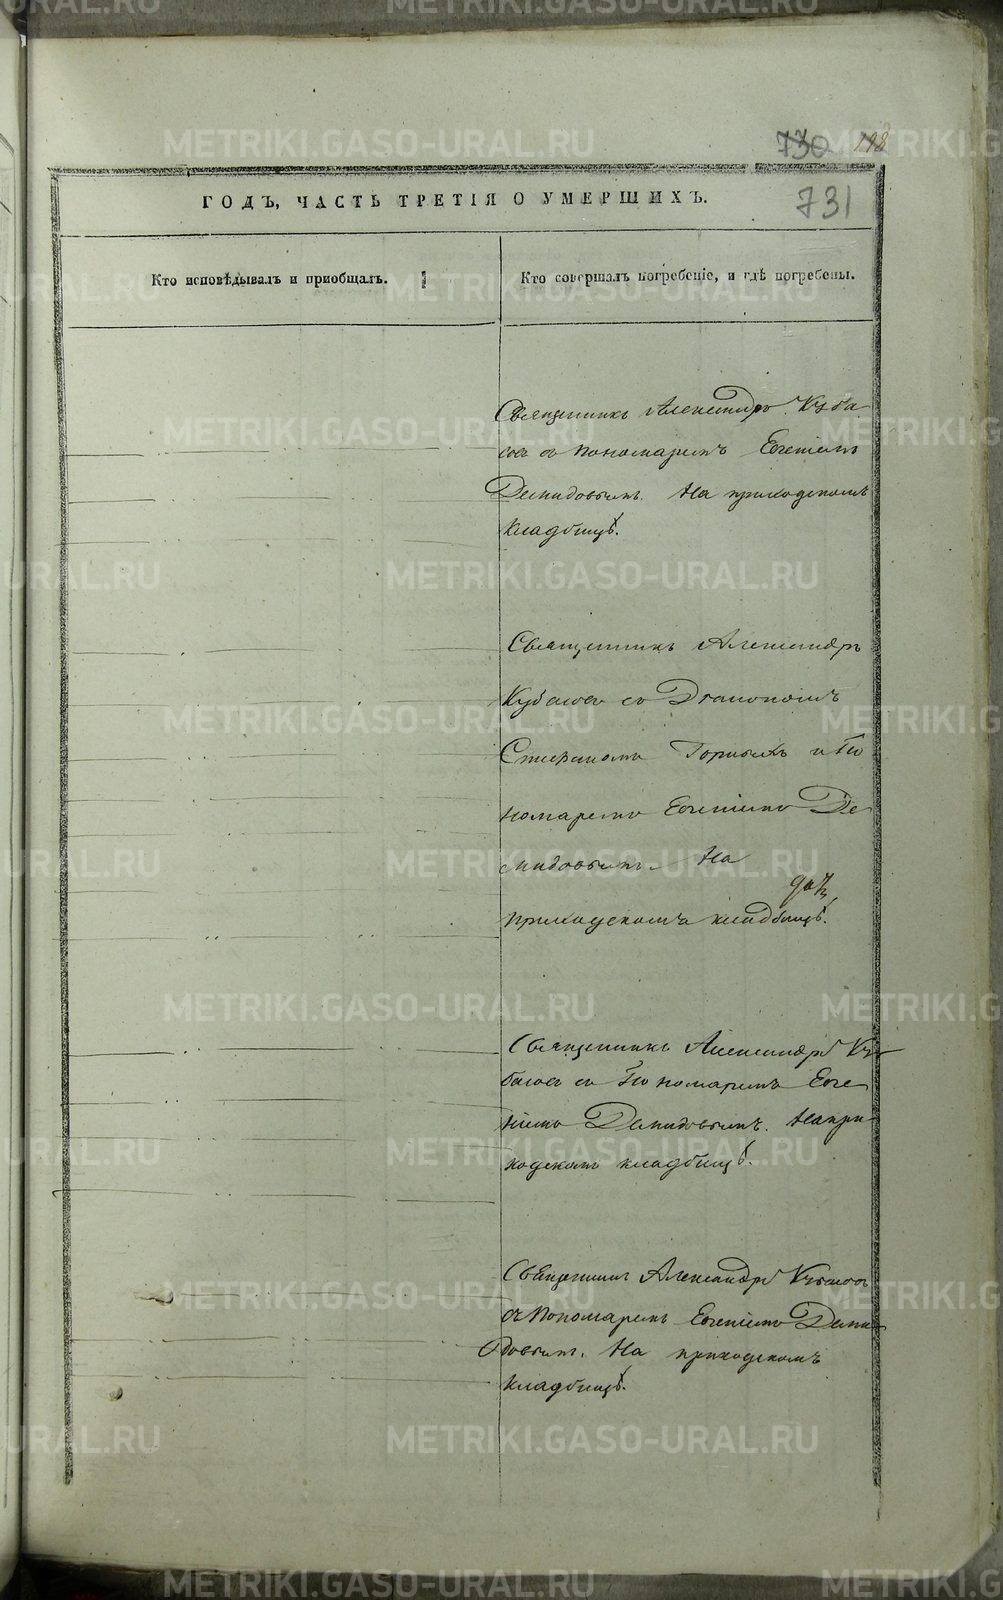 METRIKI.GASO-URAL.RU
730 198
731
ГОДЪ, ЧАСТЬ ТРЕТІЯ О УМЕРШИХЪ.
Кто исповѣдывалъ и приобщалъ.
Кто совершалъ погребеніе, и гдѣ погребены.
Священникъ Александръ Куба
совъ съ пономаремъ Евгеніемъ
Демидовымъ. На приходскомъ
кладбищѣ.
Священникъ Александръ
Кубасовъ съ Дiакономъ
Горныхъ и По
номаремъ Евгеніемъ Де
мидовымъ. На
приходскомъ кладбищѣ.
Священникъ Александръ Ку
басовъ съ Пономаремъ Евге
ніемъ Демидовымъ. На при
ходскомъ кладбищѣ.
Священникъ Александръ Кубасовъ
съ Пономаремъ Евгеніемъ Деми
довымъ. На приходскомъ
кладбищѣ.